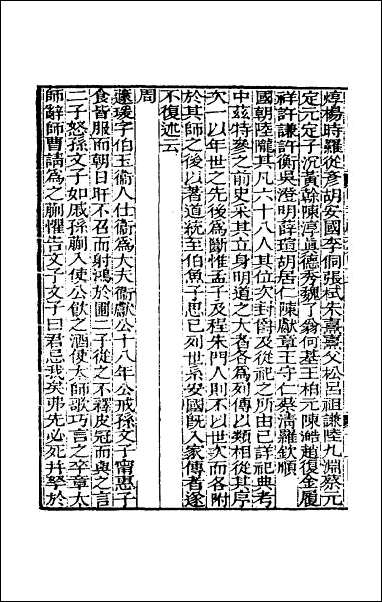 焞楊時羅從彥胡安國李侗張栻朱熹熹父松呂祖謙陸九淵蔡元
定元定子沉黃幹陳淳真德秀魏了翁何基王柏元陳澔趙復金履
祥許謙許衡吳澄明薛瑄胡居仁陳獻章王守仁蔡清羅欽順
國朝陸隴其凡六十八人其位次封爵及從祀之所由已詳祀典考
中茲特參之前史采其立身明道之大者各為列傳以類相從其序
次一以年世之先後為斷惟孟子及程朱門人則不以世次而各附
於其師之後以著道統至伯魚子思已列世系安國既入家傳者遂
不復述云
周
蘧瑗字伯玉衞人仕衞為大夫衞獻公十八年公戒孫文子甯惠子
食皆服而朝日旰不召而射鴻於囿二子從之不釋皮冠而與之言
二子怒孫文子如戚孫蒯入使公飲之酒使太師歌巧言之卒章太
師辭師曹請為之蒯懼告文子文子曰君忌我矣弗先必死幷帑於